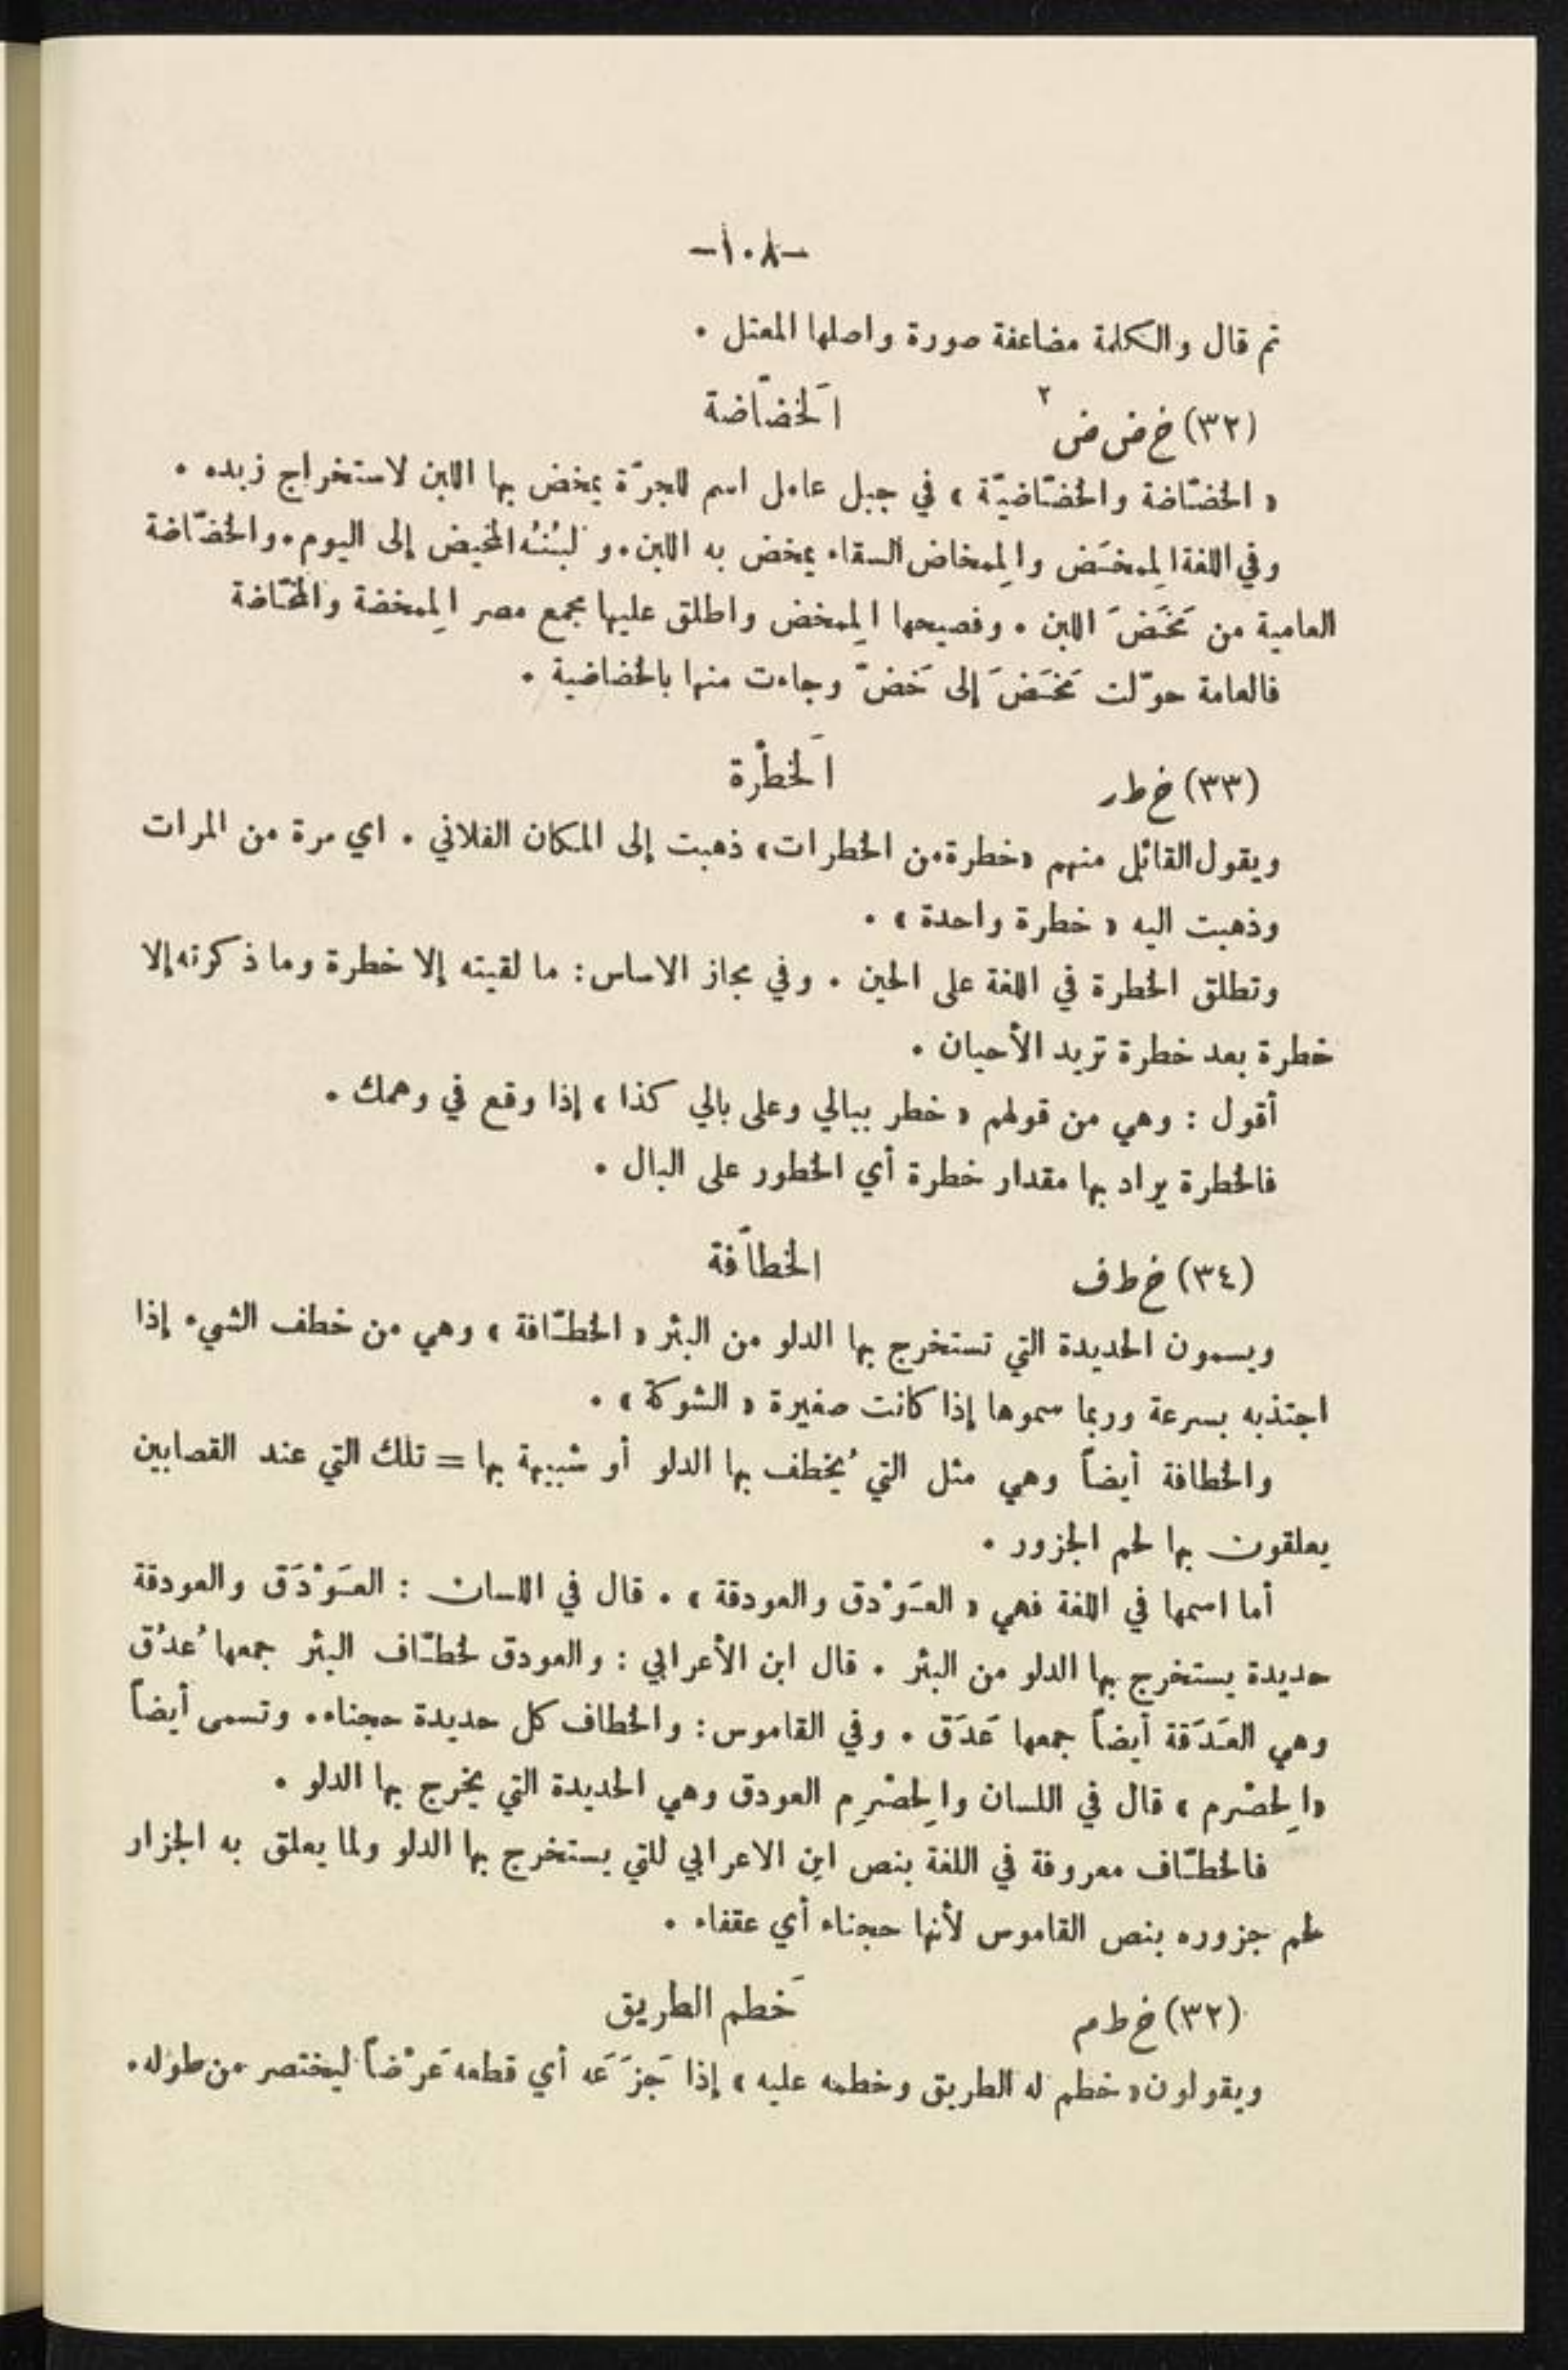 -١٠٨-
ثم قال والكلمة مضاعفة صورة واصلها المعتل .
(٣٢) خ ض ض ٢ اَلخضّاضة
« الخضّاضة والخضّاضيّة » في جبل عامل اسم للجرّة يمخض بها اللبن لاستخراج زبده .
وفي اللغة المِمخَض والمِمخاض السقاء يمخض به اللبن . و لبنُهُ المخيض إلى اليوم . والخضّاضة
العامية من مَخَضَ اللبن . وفصيحها المِمخض واطلق عليها مجمع مصر المِمخضة والمخّاضة
فالعامة حوّلت مَخَضَ إلى خَضّ وجاءت منها بالخضاضية .
(٣٣) خ ط ر اَلخطْرة
ويقول القائل منهم «خطرة من الخطرات» ذهبت إلى المكان الفلاني . اي مرة من المرات
وذهبت اليه « خطرة واحدة » .
وتطلق الخطرة في اللغة على الحين . وفي مجاز الاساس : ما لقيته إلا خطرة وما ذكرته إلا
خطرة بعد خطرة تريد الأحيان .
أقول : وهي من قولهم « خطر ببالي وعلى بالي كذا » إذا وقع في وهمك .
فالخطرة يراد بها مقدار خطرة أي الخطور على البال .
(٣٤) خ ط ف الخطاَفة
ويسمون الحديدة التي تستخرج بها الدلو من البئر « الخطّافة » وهي من خطف الشيء إذا
اجتذبه بسرعة وربما سموها إذا كانت صغيرة « الشوكة » .
والخطافة أيضاً وهي مثل التي يُخطف بها الدلو أو شبيهة بها = تلك التي عند القصابين
يعلقون بها لحم الجزور .
أما اسمها في اللغة فهي « العَوْدق والعودقة » . قال في اللسان : العَوْدَق والعودقة
حديدة يستخرج بها الدلو من البئر . قال ابن الأعرابي : والعودق لخطّاف البئر جمعها عُدُق
وهي العَدَقة أيضاً جمعها عَدَق . وفي القاموس : والخطاف كل حديدة حجناء . وتسمى أيضاً
«الِحضْرم » قال في اللسان والِحضْرِم العودق وهي الحديدة التي يخرج بها الدلو .
فالخطّاف معروفة في اللغة بنص ابن الاعرابي للتي يستخرج بها الدلو ولما يعلق به الجزار
لحم جزوره بنص القاموس لأنها حجناء أي عقفاء .
(٣٢) خ ط م خَطم الطريق
ويقولون « خطم له الطريق وخطمه عليه » إذا جَزَعَه أي قطعه عَرْضاً ليختصر من طوله .